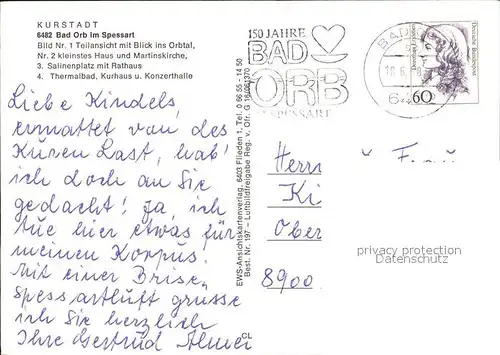 KURSTADT
6482 Bad Orb im Spessart
Bild Nr. 1 Teilansicht mit Blick ins Orbtal,
Nr. 2 kleinstes Haus und Martinskirche,
3. Salinenplatz mit Rathaus
4. Thermalbad, Kurhaus u. Konzerthalle
Liebe Kindels,
ermattet von des
Kuren Last, hab'
ich doch an Sie
gedacht! Ja, ich
tue hier etwas für
meinen Korpus.
Mit einer Brise
Spessartluft grüsse
ich Sie herzlich
Ihre Gertrud
EWS-Ansichtskartenverlag, 6403 Flieden 1, Tel. 0 66 55 - 14 50
Best. Nr. 197 - Luftbildfreigabe Reg. v. Ofr. G
CL
150 JAHRE
BAD
ORB
SPESSART
BAD
18.6.
60
Deutsche Bundespost
Herrn
Ki
Ober
8900
privacy protection
Datenschutz